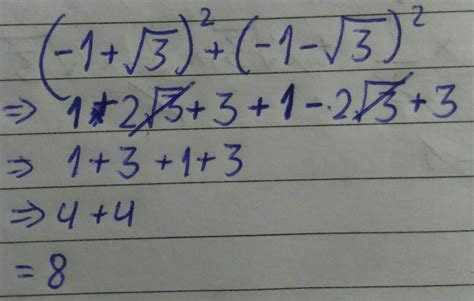 (-1+√3)² + (-1-√3)²
⇒ 1+2√3+3+1-2√3+3
⇒ 1+3+1+3
⇒ 4+4
= 8